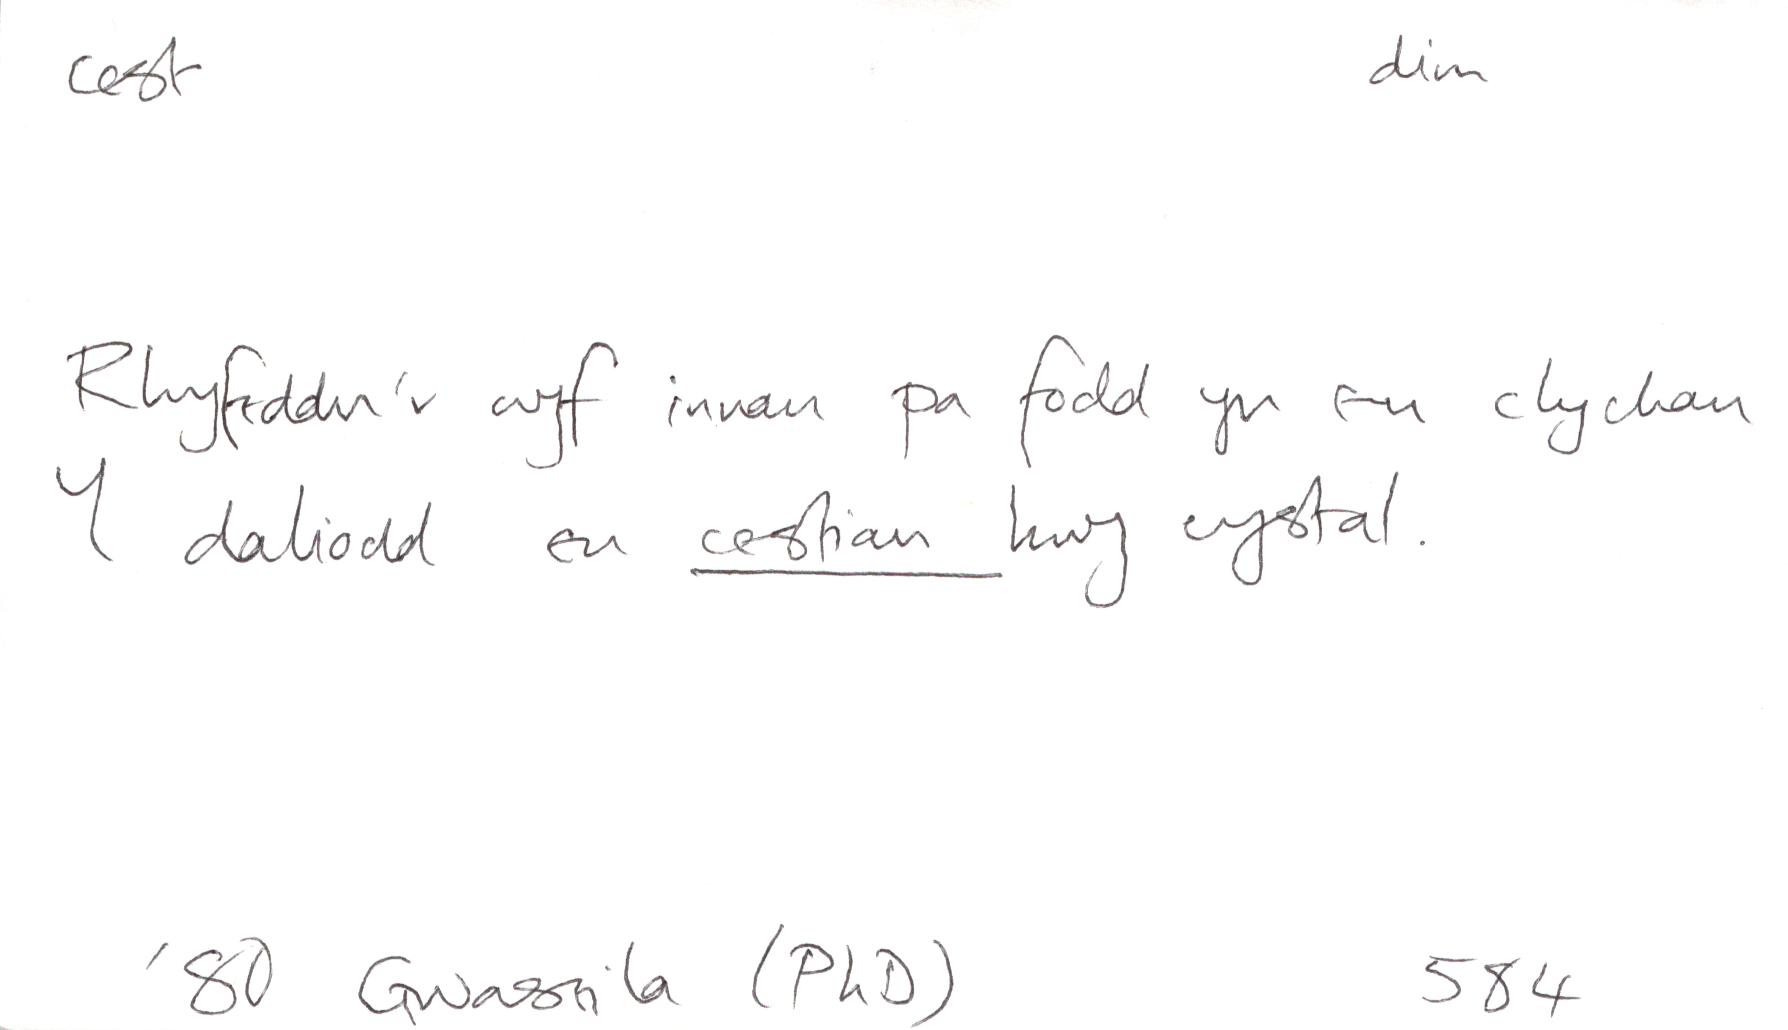 cest dim
Rhyfeddu'r wyf innau pa fodd yn eu clychau
Y daliodd eu cestiau hwy cystal.
'80 Gwasaila (PhD) 584